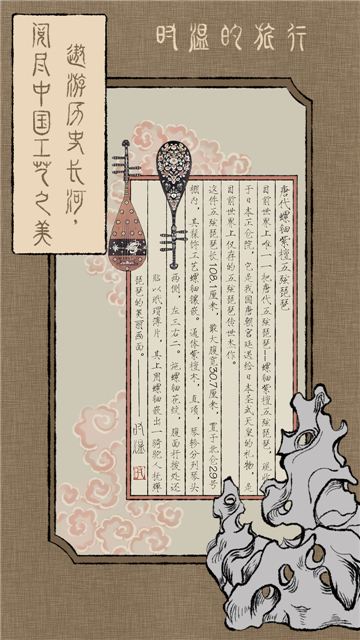 时温的旅行
遨游历史长河，
阅尽中国工艺之美
唐代螺钿紫檀五弦琵琶
目前世界上唯一一把唐代五弦琵琶——螺钿紫檀五弦琵琶，现此
于日本正仓院，它是我国唐朝官廷送给日本圣武天皇的礼物，是
目前世界上仅存的五弦琵琶传世杰作。
这件五弦琵琶长108.1厘米，最大腹宽30.7厘米，置于北仓29号
棚内，其装饰工艺螺钿镶嵌。通体紫檀木，直项，琴轸分列琴头
两侧，左三右二。施螺钿花纹，腹面扞拨处还
贴以玳瑁薄片，其上用螺钿嵌出一骑驼人抚弹
琵琶的美丽画面。
——时温